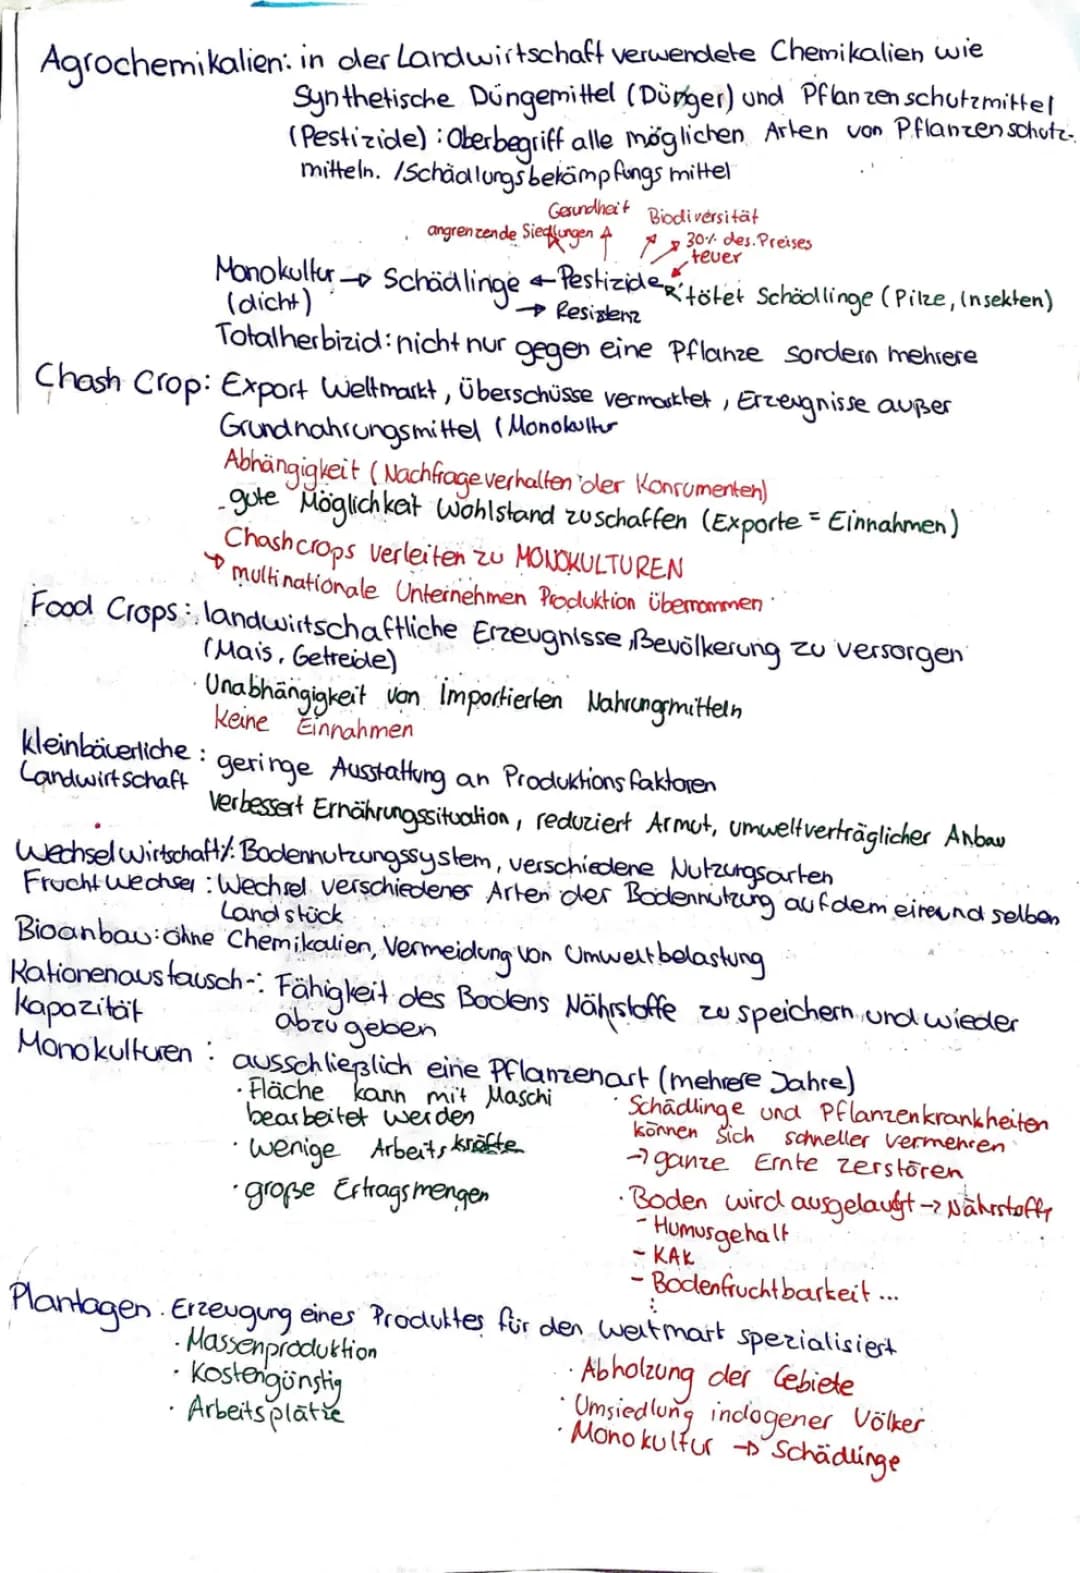 Agrochemikalien: in der Landwirtschaft verwendete Chemikalien wie
Synthetische Düngemittel (Dünger) und Pflanzenschutzmittel
(Pestizide) : Oberbegriff alle möglichen Arten von Pflanzenschutz-
mitteln. /Schädlungsbekämpfungsmittel
Gesundheit Biodiversität
angrenzende Siedlungen 30% des Preises
teuer
Monokultur → Schädlinge ← Pestizide tötet Schädlinge (Pilze, Insekten)
(dicht) → Resistenz
Totalherbizid: nicht nur gegen eine Pflanze sondern mehrere
Chash Crop: Export Weltmarkt, Überschüsse vermarktet, Erzeugnisse außer
Grundnahrungsmittel (Monokultur
Abhängigkeit (Nachfrageverhalten der Konsumenten)
- gute Möglichkeit Wohlstand zuschaffen (Exporte = Einnahmen)
Chashcrops verleiten zu MONOKULTUREN
↳ multinationale Unternehmen Produktion übernommen
Food Crops: landwirtschaftliche Erzeugnisse, Bevölkerung zu versorgen
(Mais, Getreide)
· Unabhängigkeit von importierten Nahrungsmitteln
keine Einnahmen
kleinbäuerliche : geringe Ausstattung an Produktionsfaktoren
Landwirtschaft
verbessert Ernährungssituation, reduziert Armut, umweltverträglicher Anbau
Wechselwirtschaft/: Bodennutzungssystem, verschiedene Nutzungsarten
Fruchtwechsel : Wechsel verschiedener Arten der Bodennutzung auf dem einundselben
Landstück
Bioanbau: ohne Chemikalien, Vermeidung von Umweltbelastung
Kationenaustausch-: Fähigkeit des Bodens Nährstoffe zu speichern und wieder
kapazität abzugeben
Monokulturen : ausschließlich eine Pflanzenart (mehrere Jahre)
· Fläche kann mit Maschi
bearbeitet werden
· wenige Arbeitskräfte
· große Ertragsmengen
· Schädlinge und Pflanzenkrankheiten
können sich schneller vermehren
→ ganze Ernte zerstören
· Boden wird ausgelaugt → Nährstoffe
- Humusgehalt
- KAK
- Bodenfruchtbarkeit ...
Plantagen: Erzeugung eines Produktes für den Weltmart spezialisiert
· Massenproduktion
· Kostengünstig
· Arbeitsplätze
· Abholzung der Gebiete
· Umsiedlung indogener Völker
· Monokultur → Schädlinge